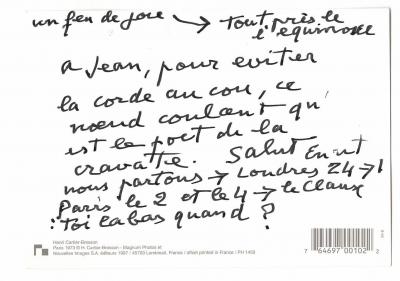 un feu de joie → tout près de
l'équinoxe
a Jean, pour eviter
la corde au cou, ce
nœud coulant qu'
est le port de la
cravatte. Salut
nous partons → Londres 24 → 1
Paris le 2 et le 4 → le Claux
: Toi labas quand ?
Henri Cartier-Bresson
Paris 1973 © H. Cartier-Bresson - Magnum Photos et
Nouvelles Images S.A. éditeurs 1997 / 45700 Lombreuil, France / offset printed in France / PH 1453
7 64697 00102 2